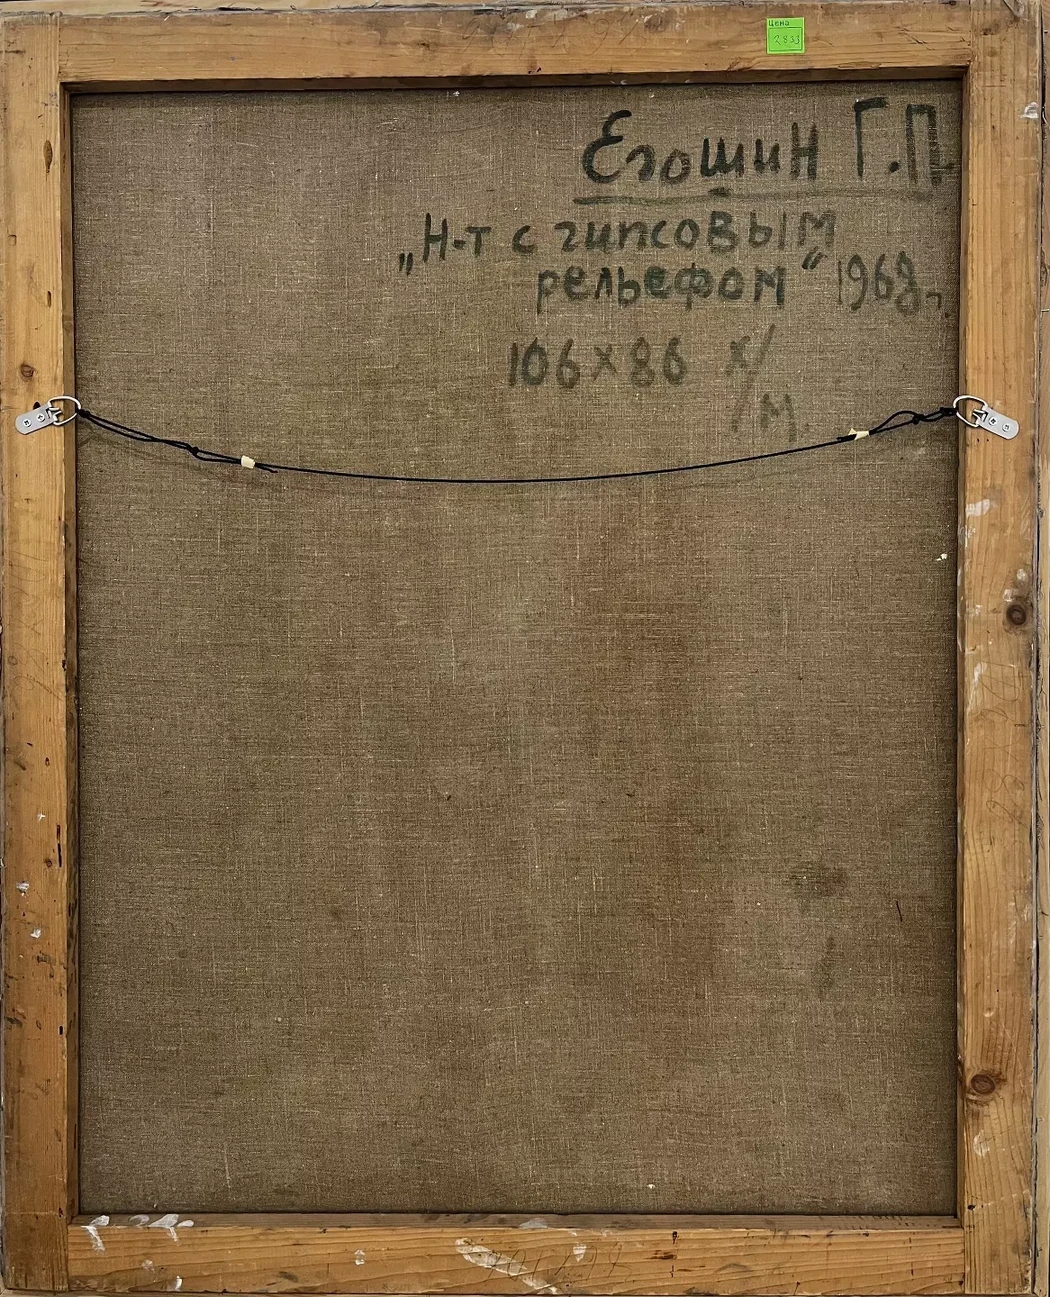 Цена
2833
Егошин Г.П.
„Н-т с гипсовым
рельефом“ 1968г.
106х86 х/
м.